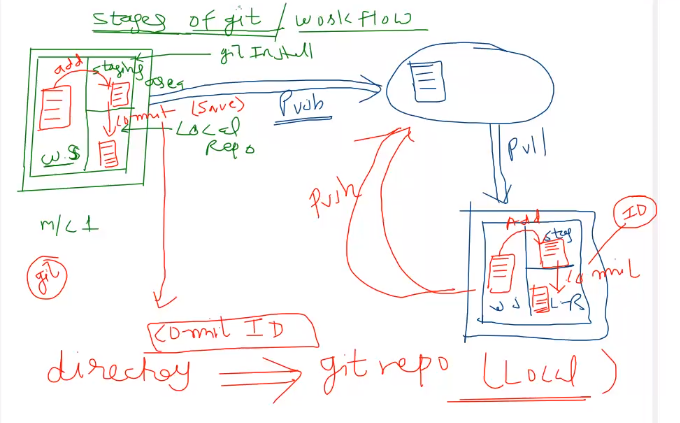 stages of git / workflow
git Install
add
staging
area
commit (save)
Push
Local
Repo
W.S
m/c 1
git
Pull
Push
ID
Add
stag
commit
W S
L-R
commit ID
directory ⇒ git repo (Local)